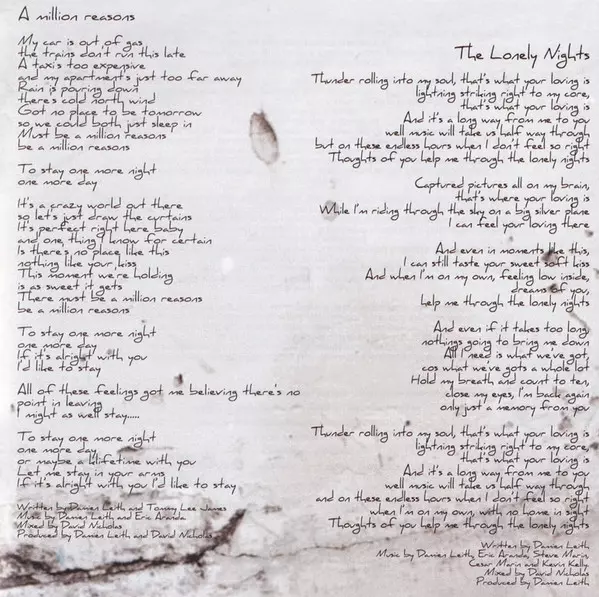 A million reasons
My car is out of gas
the trains don't run this late
A taxi's too expensive
and my apartment's just too far away
Rain is pouring down
there's cold north wind
Got no place to be tomorrow
so we could both just sleep in
Must be a million reasons
be a million reasons
To stay one more night
one more day
It's a crazy world out there
so let's just draw the curtains
It's perfect right here baby
and one, thing I know for certain
Is there's no place like this
nothing like your kiss
This moment we're holding
is as sweet it gets
There must be a million reasons
be a million reasons
To stay one more night
one more day
If it's alright with you
I'd like to stay
All of these feelings got me believing there's no
point in leaving
I might as well stay.....
To stay one more night
one more day
or maybe a lifetime with you
Let me stay in your arms
If it's alright with you I'd like to stay
Written by Damien Leith and Tommy Lee James
Music by Damien Leith and Eric Aranda
Mixed by David Nicholas
Produced by Damien Leith and David Nicholas
The Lonely Nights
Thunder rolling into my soul, that's what your loving is
lightning striking right to my core,
that's what your loving is
And it's a long way from me to you
well music will take us half way through
but on these endless hours when I don't feel so right
Thoughts of you help me through the lonely nights
Captured pictures all on my brain,
that's where your loving is
While I'm riding through the sky on a big silver plane
I can feel your loving there
And even in moments like this,
I can still taste your sweet soft kiss
And when I'm on my own, feeling low inside,
dreams of you,
help me through the lonely nights
And even if it takes too long,
nothings going to bring me down
All I need is what we've got,
cos what we've gots a whole lot
Hold my breath and count to ten,
close my eyes, I'm back again
only just a memory from you
Thunder rolling into my soul, that's what your loving is
lightning striking right to my core,
that's what your loving is
And it's a long way from me to you
well music will take us half way through
and on these endless hours when I don't feel so right
when I'm on my own, with no home in sight
Thoughts of you help me through the lonely nights
Written by Damien Leith
Music by Damien Leith, Eric Aranda, Steve Marin,
Cesar Marin and Kevin Kelly
Mixed by David Nicholas
Produced by Damien Leith